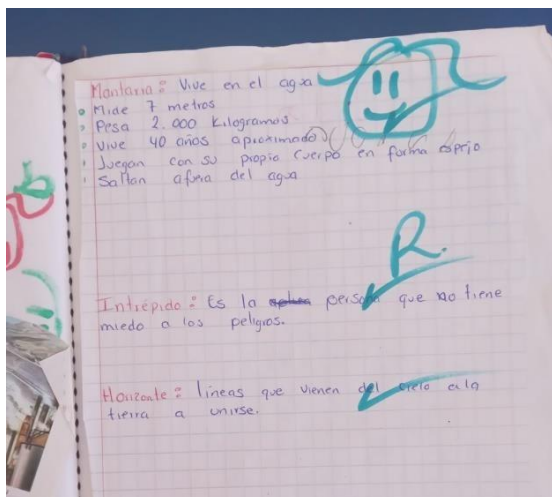 Mantaria: Vive en el agua
Mide 7 metros
Pesa 2.000 Kilogramos
Vive 40 años aproximado
Juegan con su propio cuerpo en forma espejo
Saltan afuera del agua
R.
Intrépido: Es la persona que no tiene
miedo a los peligros.
Horizonte: líneas que vienen del cielo a la
tierra a unirse.